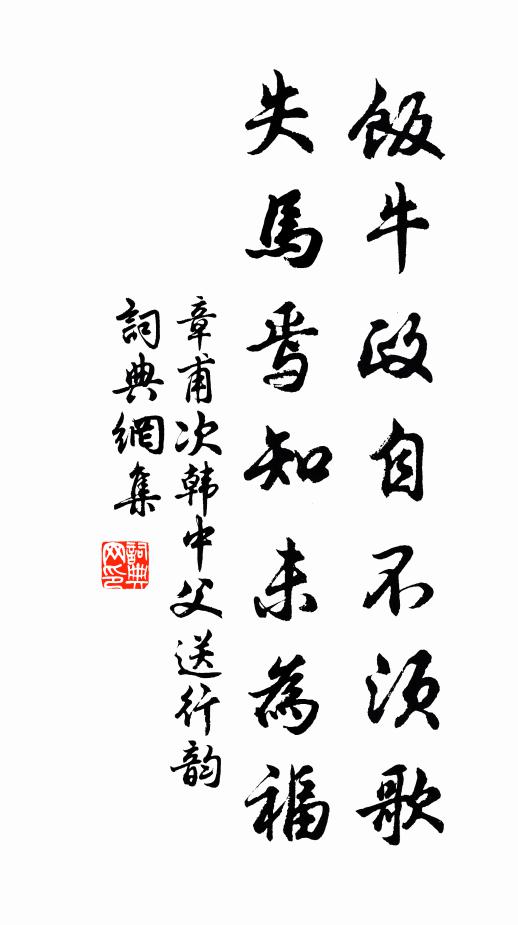 飯牛政自不須歌
失馬焉知未為福
章甫次韩中父送行韵
詞典網集
詞典網印